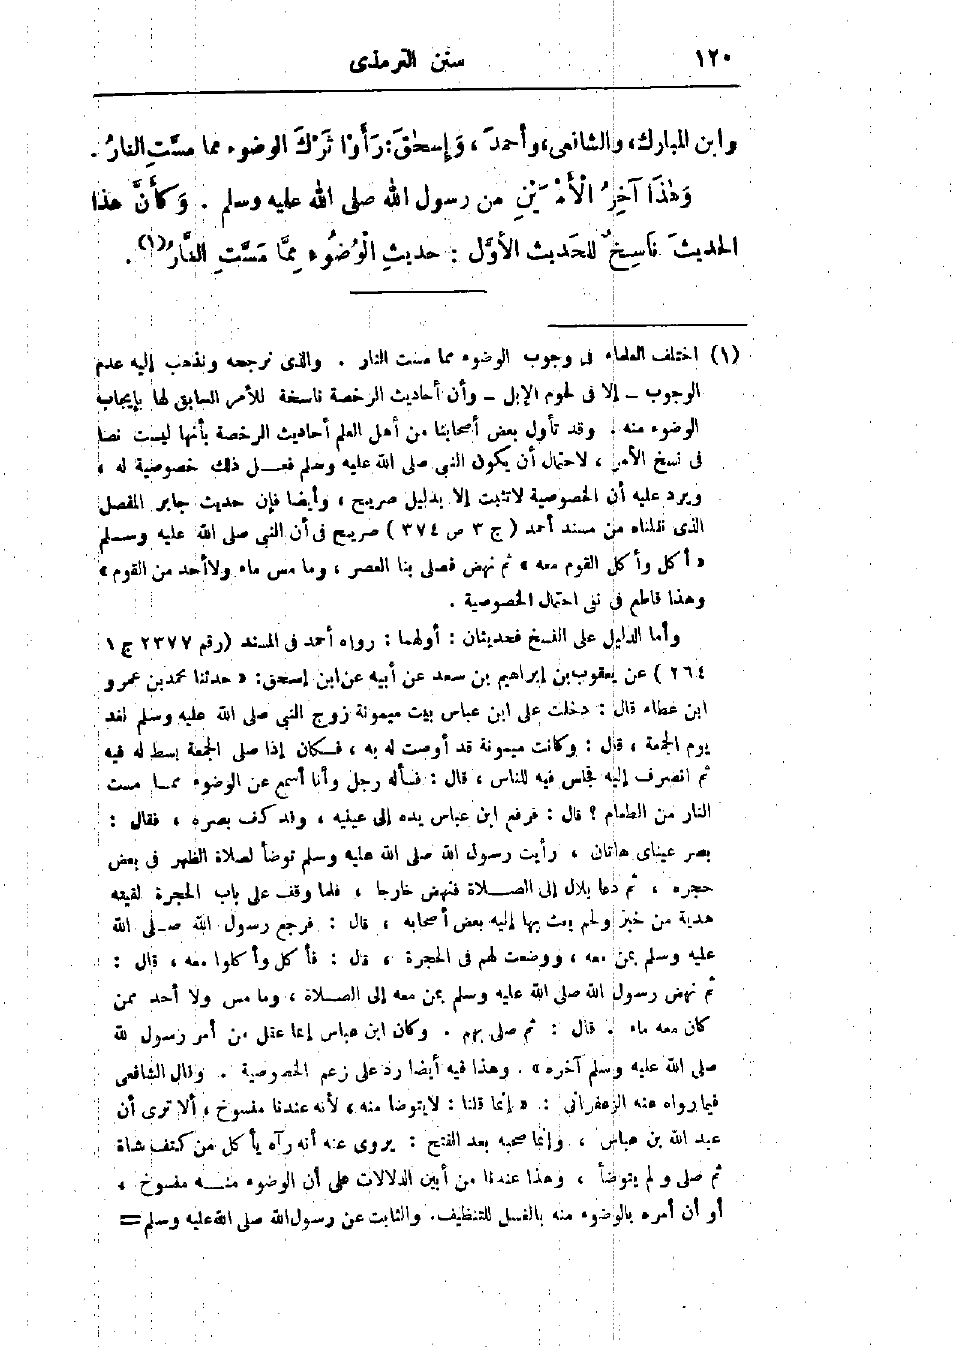 ١٢٠ سنن الترمذى
وابن المبارك، والشافعى، وأحمدَ، وَإسحٰقَ: رَأَوْا تَرْكَ الوضوء مما مسَّتِ النارُ.
وَهٰذَا آخِرُ الْأَمْرَيْنِ من رسول الله صلى الله عليه وسلم . وَكأَنَّ هذا
الحديثَ نَاسِخٌ للحَديث الأوَّل : حديثِ الْوُضُوء مِمَّا مَسَّتِ النَّارُ(١).
(١) اختلف العلماء فى وجوب الوضوء مما مست النار . والذى نرجحه ونذهب إليه عدم
الوجوب – إلا فى لحوم الإبل – وأن أحاديث الرخصة ناسخة للأمر السابق لها بإيجاب
الوضوء منه . وقد تأول بعض أصحابنا من أهل العلم أحاديث الرخصة بأنها ليست نصا
فى نسخ الأمر ، لاحتمال أن يكون النبى صلى الله عليه وسلم فعل ذلك خصوصية له ،
ويرد عليه أن الخصوصية لاتثبت إلا بدليل صريح ، وأيضا فإن حديث جابر المفصل
الذى نقلناه من مسند أحمد ( ج ٣ ص ٣٧٤ ) صريح فى أن النبى صلى الله عليه وسلم
« أكل وأكل القوم معه » ثم نهض فصلى بنا العصر ، وما مس ماء ولاأحد من القوم »
وهذا قاطع فى نفى احتمال الخصوصية .
وأما الدليل على النسخ فحديثان : أولهما : رواه أحمد فى المسند (رقم ٢٣٧٧ ج ١
٢٦٤ ) عن يعقوب بن إبراهيم بن سعد عن أبيه عن ابن إسحق: « حدثنا محمد بن عمرو
ابن عطاء قال : دخلت على ابن عباس بيت ميمونة زوج النبى صلى الله عليه وسلم لغد
يوم الجمعة ، قال : وكانت ميمونة قد أوصت له به ، فكان إذا صلى الجمعة بسط له فيه
ثم انصرف إليه فجلس فيه للناس ، قال : فسأله رجل وأنا أسمع عن الوضوء مما مست
النار من الطعام ؟ قال : فرفع ابن عباس يده إلى عينيه ، وقد كف بصره ، فقال :
بصر عيناى هاتان ، رأيت رسول الله صلى الله عليه وسلم توضأ لصلاة الظهر فى بعض
حجره ، ثم دعا بلال إلى الصلاة فنهض خارجا ، فلما وقف على باب الحجرة لقيته
هدية من خبز ولحم بعث بها إليه بعض أصحابه ، قال : فرجع رسول الله صلى الله
عليه وسلم بمن معه ، ووضعت لهم فى الحجرة ، قال : فأكل وأكلوا معه ، قال :
ثم نهض رسول الله صلى الله عليه وسلم بمن معه إلى الصلاة ، وما مس ولا أحد ممن
كان معه ماء . قال : ثم صلى بهم . وكان ابن عباس إنما عقل من أمر رسول الله
صلى الله عليه وسلم آخره » . وهذا فيه أيضا رد على زعم الخصوصية . وقال الشافعى
فيما رواه عنه الزعفرانى : « إنما قلنا : لايتوضأ منه ، لأنه عندنا منسوخ ، ألا ترى أن
عبد الله بن عباس ، وإنما صحبه بعد الفتح : يروى عنه أنه رآه يأكل من كتف شاة
ثم صلى ولم يتوضأ ، وهذا عندنا من أبين الدلالات على أن الوضوء منه منسوخ ،
أو أن أمره بالوضوء منه بالغسل للتنظيف. والثابت عن رسول الله صلى الله عليه وسلم =